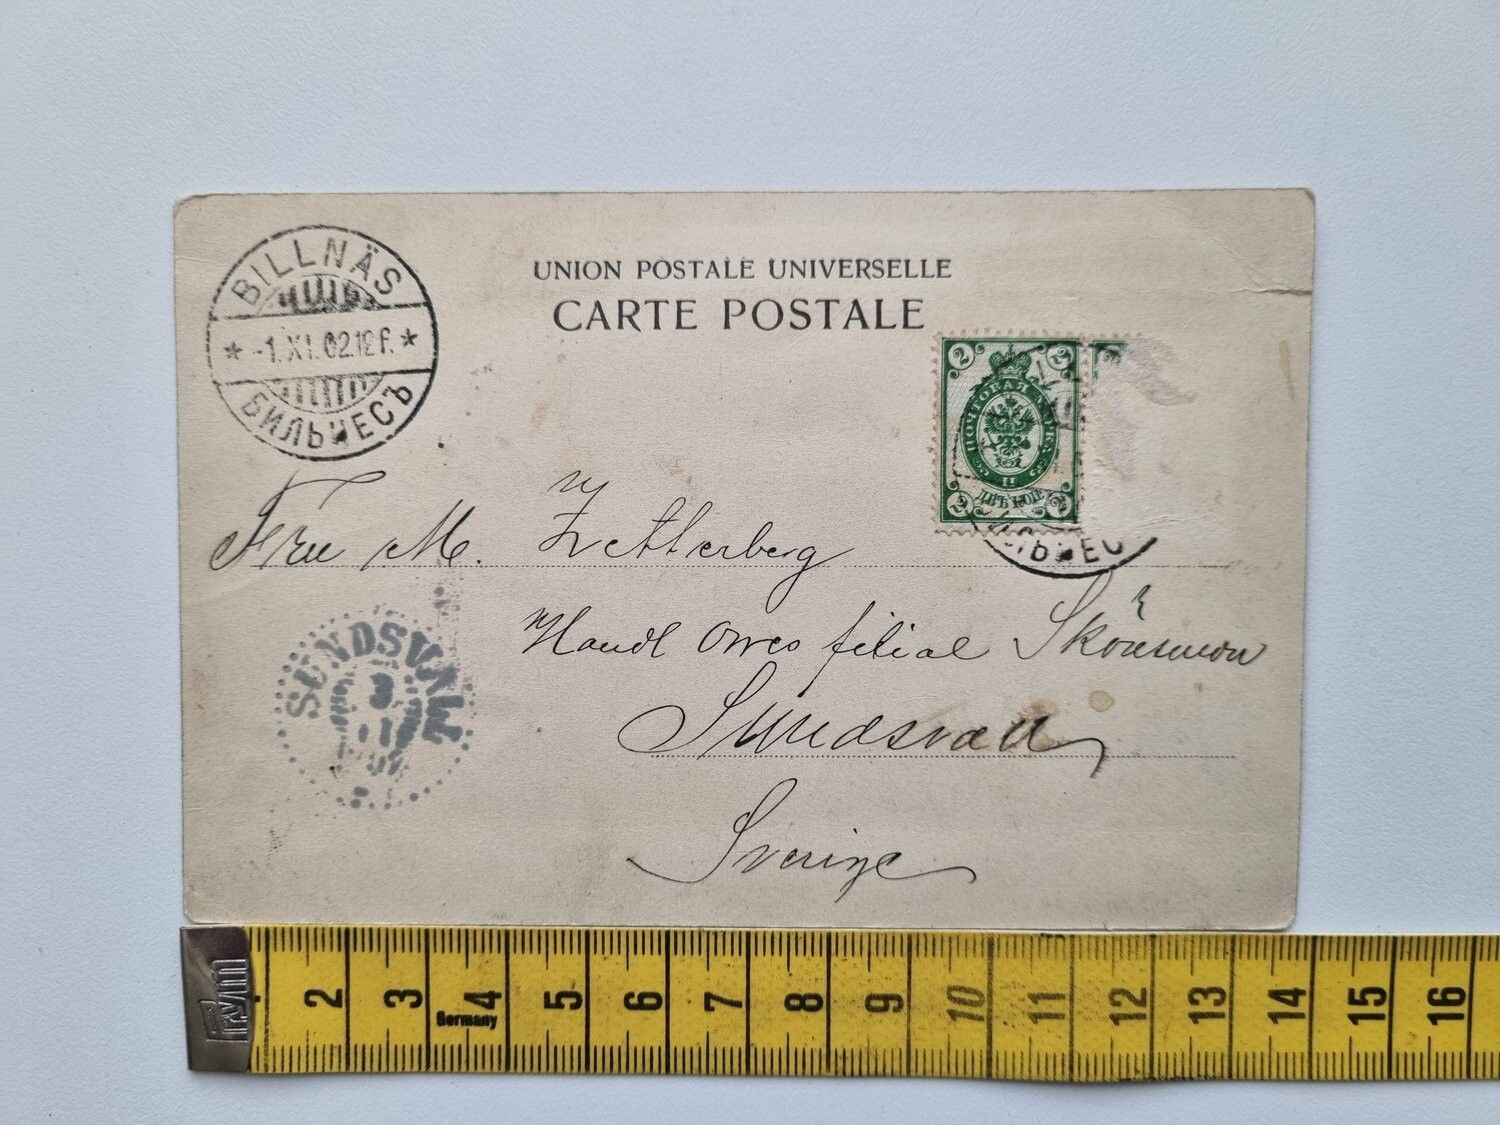 UNION POSTALE UNIVERSELLE
CARTE POSTALE
BILLNÄS
* -1.XI.02.12 f. *
БИЛЬНЕСЪ
2 2
ПОЧТОВАЯ МАРКА
ДВѢ КОП.
2 2
Fru M. Zetterberg
Handl Owes filial Skönsmon
Sundsvall
Sverige
SUNDSVALL
3
11
Prym
2 3 4 5 6 7 8 9 10 11 12 13 14 15 16
Germany